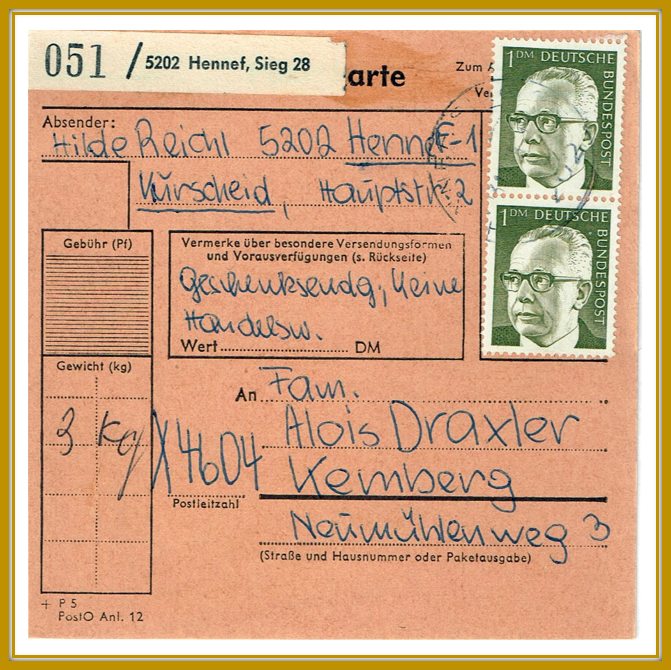 051 / 5202 Hennef, Sieg 28
arte
Zum
1 DM DEUTSCHE BUNDESPOST
1 DM DEUTSCHE BUNDESPOST
Absender:
Hilde Reichl 5202 Hennef-1
Kurscheid, Hauptstr. 2
Gebühr (Pf)
Vermerke über besondere Versendungsformen
und Vorausverfügungen (s. Rückseite)
Geschenksendg., Keine
Handelsw.
Wert DM
Gewicht (kg)
3 kg
An Fam.
Alois Draxler
X4604 Kemberg
Postleitzahl
Neumühlenweg 3
(Straße und Hausnummer oder Paketausgabe)
+ P 5
PostO Anl. 12